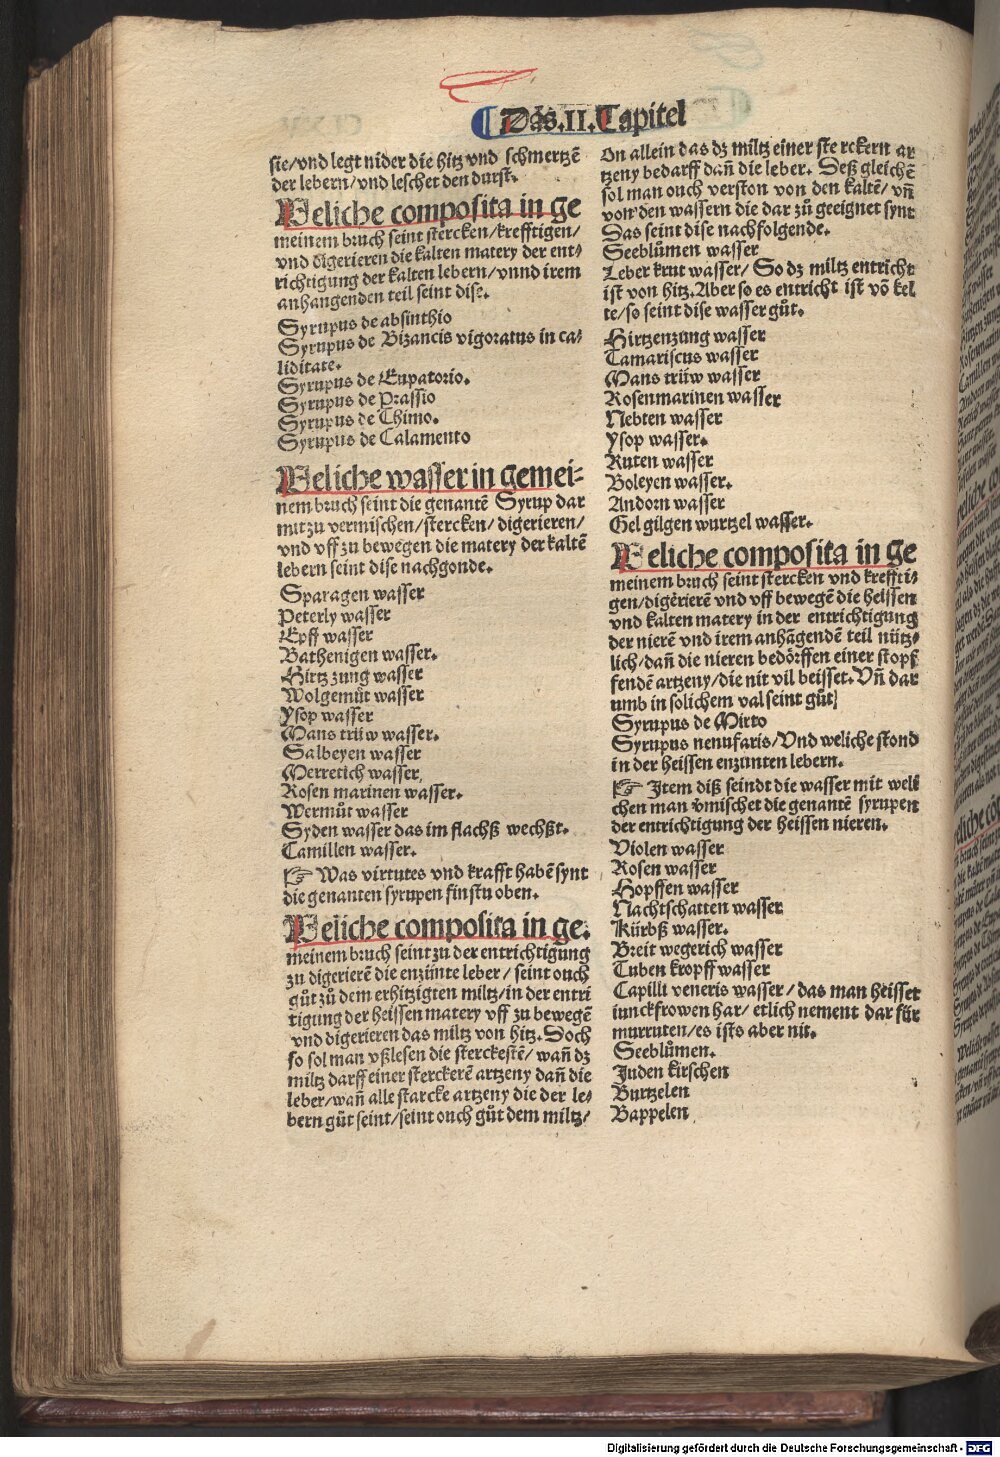 Das.II.Capitel
sie/vnd legt nider die hitz vnd schmertzē
der lebern/vnd leschet den durst.
Weliche composita in ge
meinem bruch seint stercken/krefftigen/
vnd digerieren die kalten matery der ent⸗
richtigung der kalten lebern/vnnd irem
anhangenden teil seint dise.
Syrupus de absinthio
Syrupus de Bizancis vigoratus in ca⸗
liditate.
Syrupus de Eupatorio.
Syrupus de Prassio
Syrupus de Thimo.
Syrupus de Calamento
Weliche wasser in gemei⸗
nem bruch seint die genantē Syrup dar
mit zu vermischen/stercken/digerieren/
vnd vff zu bewegen die matery der kaltē
lebern seint dise nachgonde.
Sparagen wasser
Peterly wasser
Epff wasser
Bathenigen wasser.
Hirtz zung wasser
Wolgemuͦt wasser
Ysop wasser
Mans trüw wasser.
Salbeyen wasser
Merretich wasser
Rosen marinen wasser.
Wermuͦt wasser
Syden wasser das im flachß wechßt.
Camillen wasser.
☞ Was virtutes vnd krafft habē synt
die genanten syrupen finstu oben.
Weliche composita in ge.
meinem bruch seint zu der entrichtigung
zu digerierē die enzünte leber/seint ouch
guͦt zuͦ dem erhitzigten miltz/in der entri
tigung der heissen matery vff zu bewegē
vnd digerieren das miltz von hitz.Doch
so sol man vßlesen die sterckestē/wañ dz
miltz darff einer sterckerē artzeny dañ die
leber/wañ alle starcke artzeny die der le⸗
bern guͦt seint/seint ouch guͦt dem miltz/
On allein das dz miltz einer ste rckern ar
tzeny bedarff dañ die leber. Deß gleichē
sol man ouch verston von den kaltē/vñ
von den wassern die dar zuͦ geeignet synt
Das seint dise nachfolgende.
Seebluͦmen wasser
Leber krut wasser/ So dz miltz entricht
ist von hitz.Aber so es entricht ist võ kel
te/so seint dise wasser guͦt.
Hirtzenzung wasser
Tamariscus wasser
Mans trüw wasser
Rosenmarinen wasser
Nebten wasser
Ysop wasser.
Ruten wasser
Boleyen wasser.
Andorn wasser
Gel gilgen wurtzel wasser.
Weliche composita in ge
meinem bruch seint stercken vnd kreffti⸗
gen/digerierē vnd vff bewegē die heissen
vnd kalten matery in der entrichtigung
der nierē vnd irem anhāgendē teil nütz⸗
lich/dañ die nieren bedoͤrffen einer stopf
fendē artzeny/die nit vil beisset.Vñ dar
umb in solichem val seint guͦt
Syrupus de Mirto
Syrupus nenufaris/Vnd weliche stond
in der heissen enzunten lebern.
☞ Item diß seindt die wasser mit weli
chen man vmischet die genantē syrupen
der entrichtigung der heissen nieren.
Violen wasser
Rosen wasser
Hopffen wasser
Nachtschatten wasser
Kürbß wasser.
Breit wegerich wasser
Tuben kropff wasser
Capilli veneris wasser/das man heisset
iunckfrowen har/etlich nement dar für
murruten/es ists aber nit.
Seebluͦmen.
Juden kirschen
Burtzelen
Bappelen
Digitalisierung gefördert durch die Deutsche Forschungsgemeinschaft - DFG